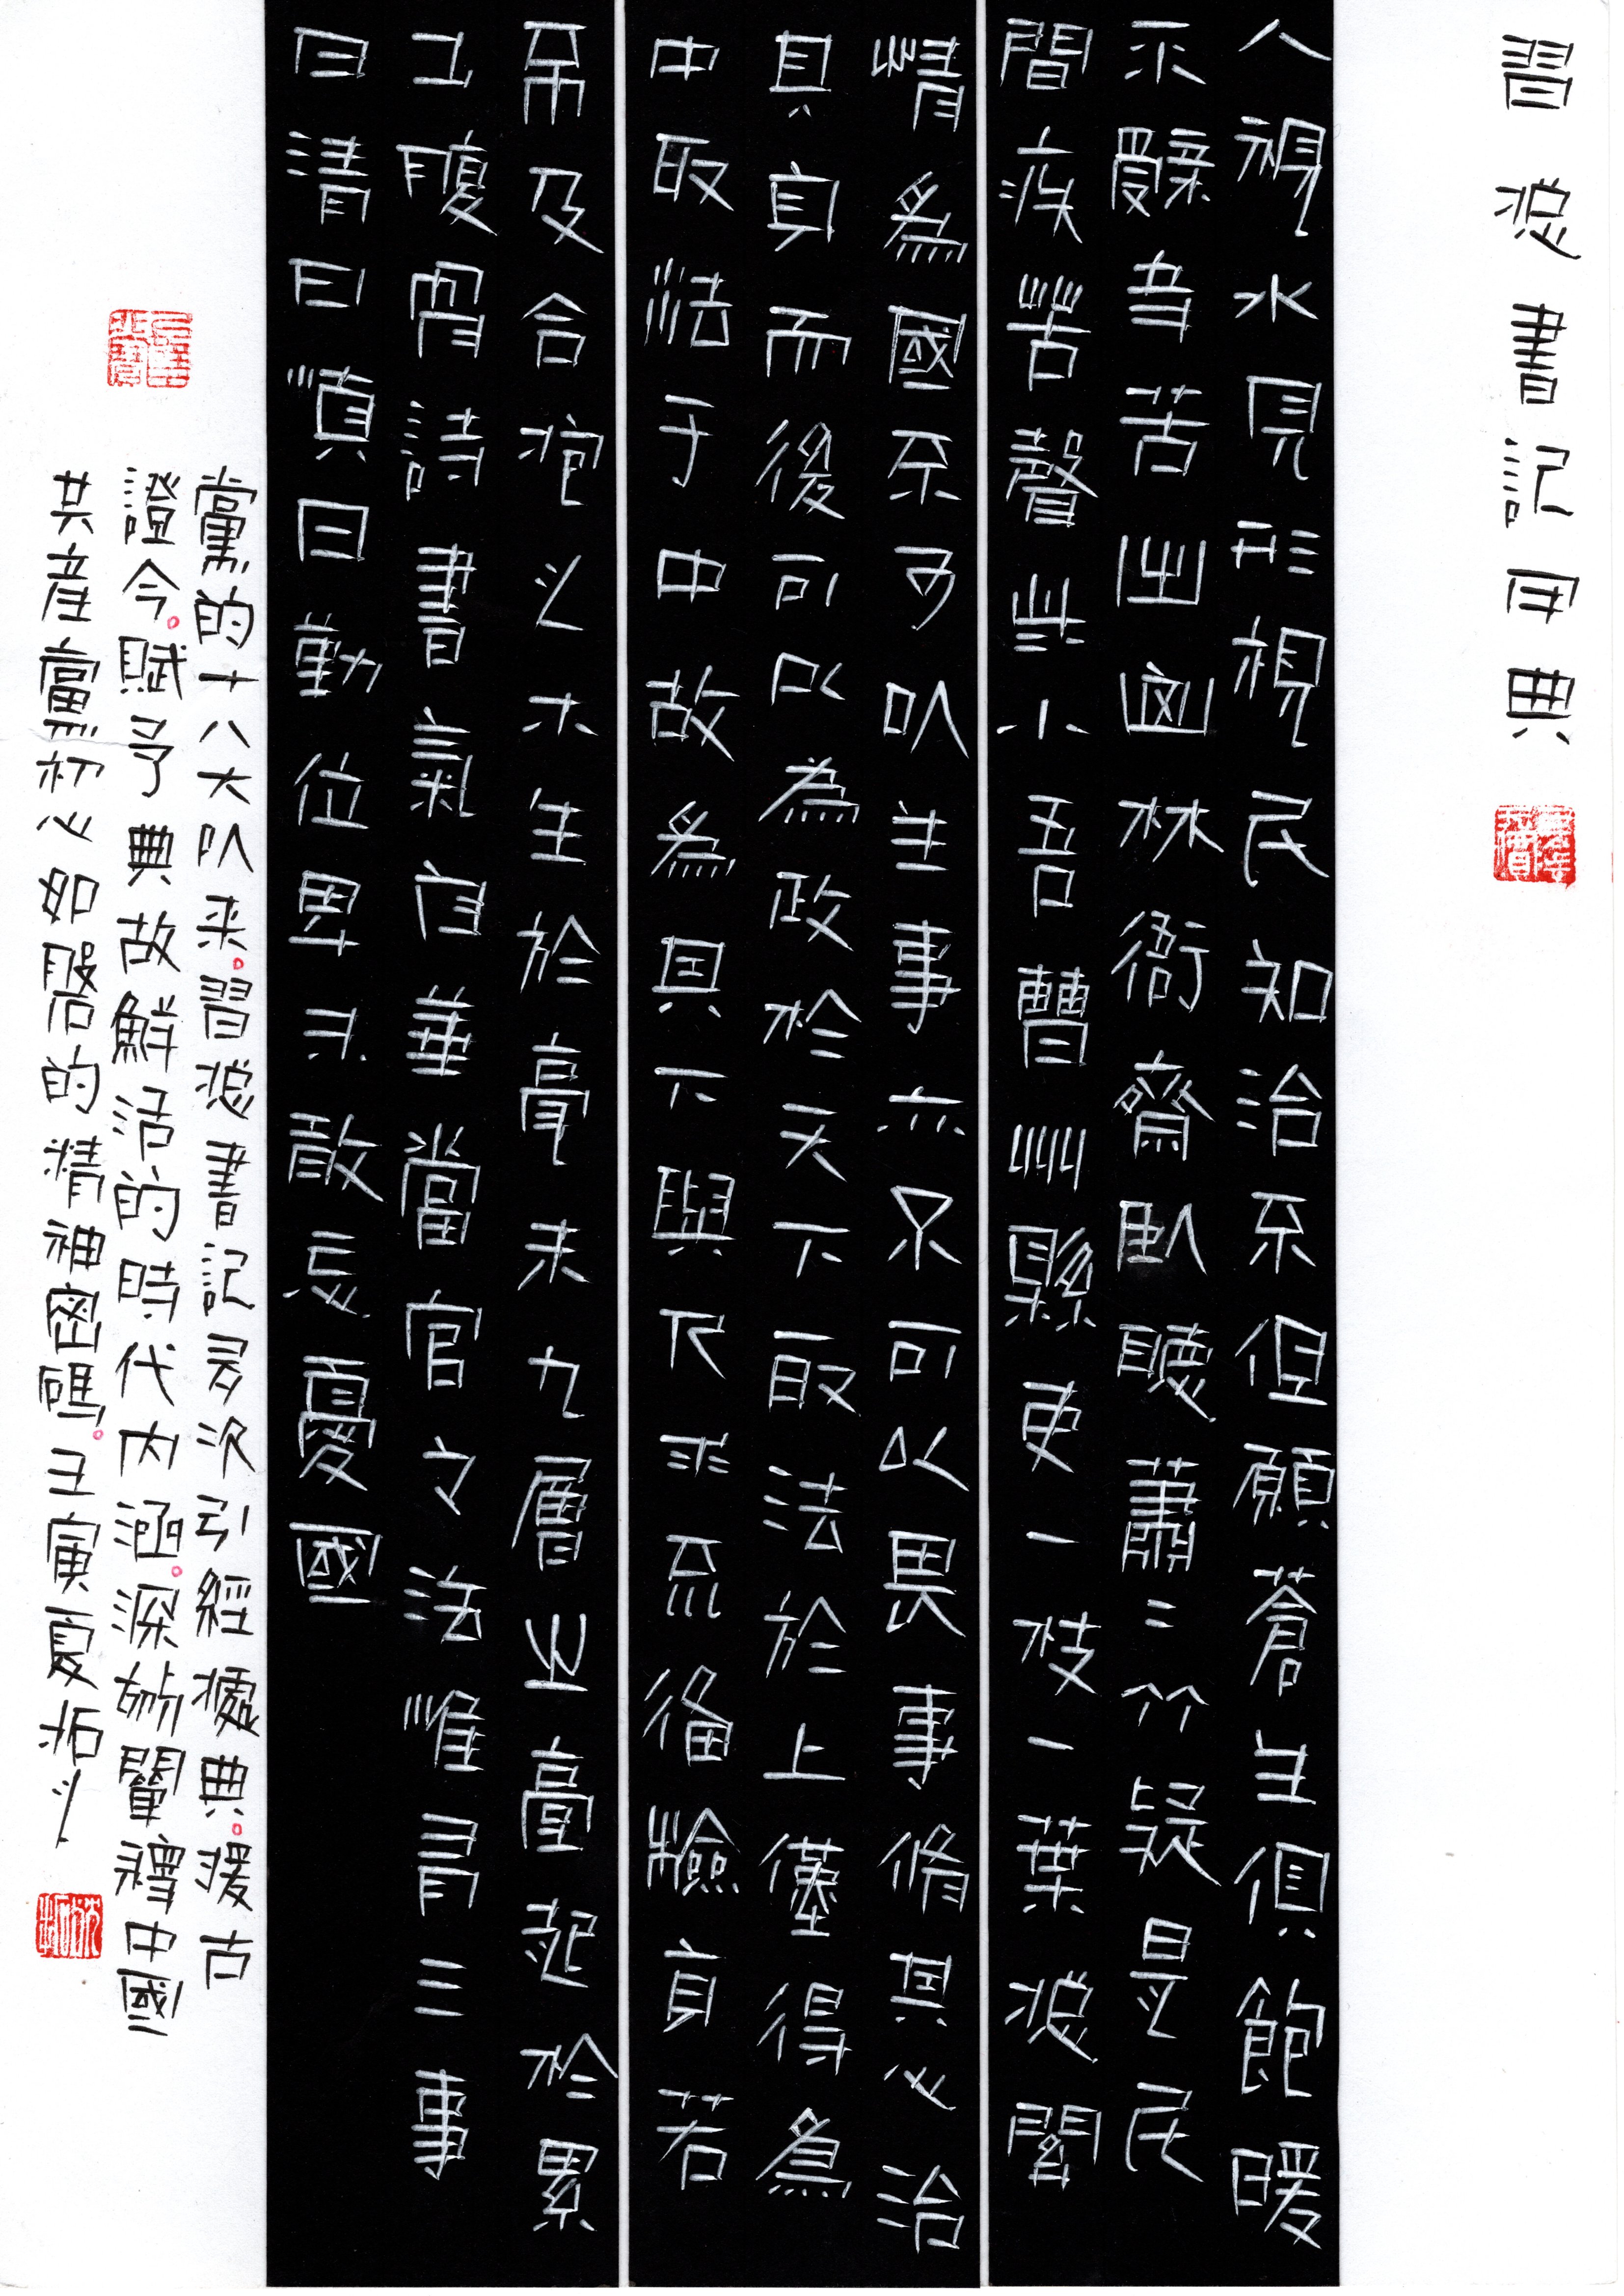 習總書記用典
人視水見形視民知治不但願蒼生俱飽暖
不辭辛苦出山林衙齋臥聽蕭〻竹疑是民
間疾苦聲些小吾曹州縣吏一枝一葉總關
情為國不可以生事亦不可以畏事脩其心治
其身而後可以為政於天下取法於上僅得為
中取法于中故為其下與人不求備檢身若
不及合抱之木生於毫末九層之臺起於累
土腹有詩書氣自華當官之法惟有三事
曰清曰慎曰勤位卑未敢忘憂國
黨的十八大以來。習總書記多次引經據典。援古
證今。賦予典故鮮活的時代內涵。深刻闡釋中國
共產黨初心如磐的精神密碼。壬寅夏拓